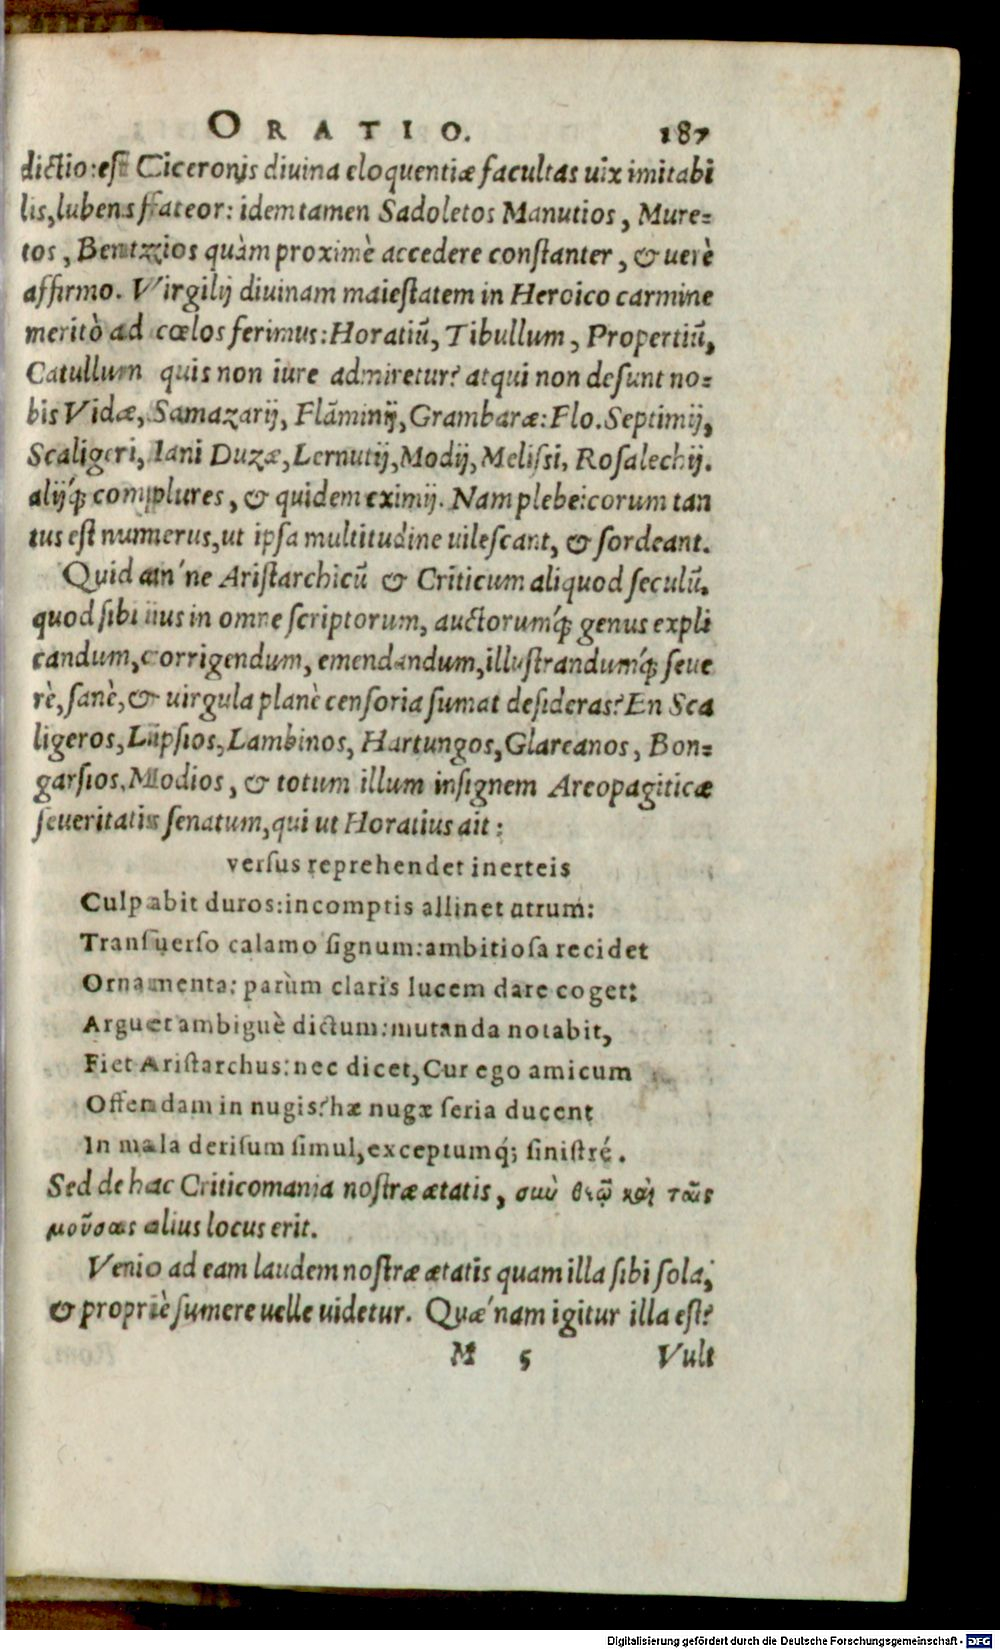 ORATIO. 187
dictio: est Ciceronis divina eloquentiæ facultas uix imitabi
lis, lubens fateor: idem tamen Sadoletos Manutios, Mure=
tos, Bentzios quàm proximè accedere constanter, & uerè
affirmo. Virgilij diuinam maiestatem in Heroico carmine
meritò ad cœlos ferimus: Horatiū, Tibullum, Propertiū,
Catullum quis non iure admiretur? atqui non desunt no=
bis Vidæ, Samazarij, Flãminij, Grambaræ: Flo. Septimij,
Scaligeri, Iani Duzæ, Lernutij, Modij, Melissi, Rosalechij.
alijq́; complures, & quidem eximij. Nam plebeicorum tan
tus est numerus, ut ipsa multitudine uilescant, & sordeant.
Quid ain' ne Aristarchicū & Criticum aliquod seculū.
quod sibi ius in omne scriptorum, auctorumq́; genus expli
candum, corrigendum, emendandum, illustrandumq́; seue
rè, sanè, & uirgula planè censoria sumat desideras? En Sca
ligeros, Lipsios, Lambinos, Hartungos, Glareanos, Bon=
garsios, Modios, & totum illum insignem Areopagiticæ
seueritatis senatum, qui ut Horatius ait:
versus reprehendet inerteis
Culpabit duros: incomptis allinet atrum:
Transuerso calamo signum: ambitiosa recidet
Ornamenta: parùm claris lucem dare coget:
Arguet ambiguè dictum: mutanda notabit,
Fiet Aristarchus: nec dicet, Cur ego amicum
Offendam in nugis? hæ nugæ seria ducent
In mala derisum simul, exceptumq́; sinistré.
Sed de hac Criticomania nostræ ætatis, συὺ θεῷ καὶ ταῖς
μούσαις alius locus erit.
Venio ad eam laudem nostræ ætatis quam illa sibi sola,
& propriè sumere uelle uidetur. Quæ'nam igitur illa est?
M 5 Vult
Digitalisierung gefördert durch die Deutsche Forschungsgemeinschaft - DFG